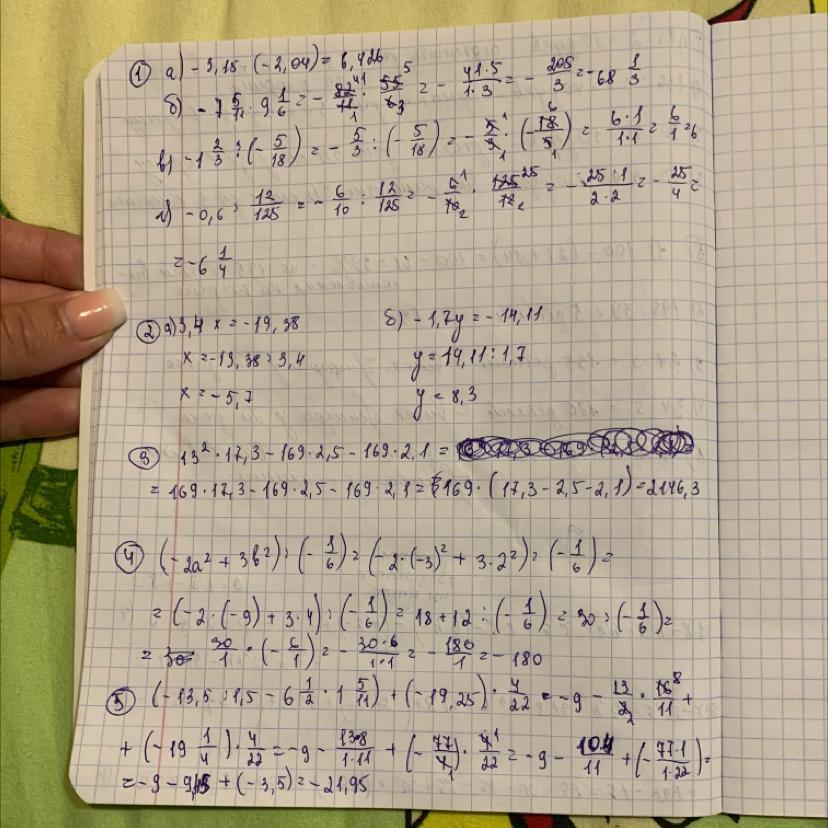 1 а) -3,15 · (-2,04) = 6,426
б) -7 5/11 · 9 1/6 = - 82/11 · 55/6 = - 41·5/1·3 = - 205/3 = -68 1/3
в) -1 2/3 : (-5/18) = - 5/3 : (-5/18) = - 5/3 · (-18/5) = 6·1/1·1 = 6/1 = 6
г) -0,6 : 12/125 = - 6/10 : 12/125 = - 6/10 · 125/12 = - 25·1/2·2 = - 25/4 =
= -6 1/4
2 а) 3,4 x = -19,38 б) -1,7y = -14,11
x = -19,38 : 3,4 y = 14,11 : 1,7
x = -5,7 y = 8,3
3 13² · 17,3 - 169 · 2,5 - 169 · 2,1 =
= 169 · 17,3 - 169 · 2,5 - 169 · 2,1 = 169 · (17,3 - 2,5 - 2,1) = 2146,3
4 (-2a² + 3b²) : (-1/6) = (-2 · (-3)² + 3 · 2²) : (-1/6) =
= (-2 · (-9) + 3 · 4) : (-1/6) = 18 + 12 : (-1/6) = 30 : (-1/6) =
= 30/1 · (-6/1) = - 30·6/1·1 = - 180/1 = -180
5 (-13,5 : 1,5 - 6 1/2 · 1 5/11) + (-19,25) · 4/22 = -9 - 13/2 · 16/11 +
+ (-19 1/4) · 4/22 = -9 - 13·8/1·11 + (-77/4) · 4/22 = -9 - 104/11 + (-77·1/1·22) =
= -9 - 9,45 + (-3,5) = -21,95